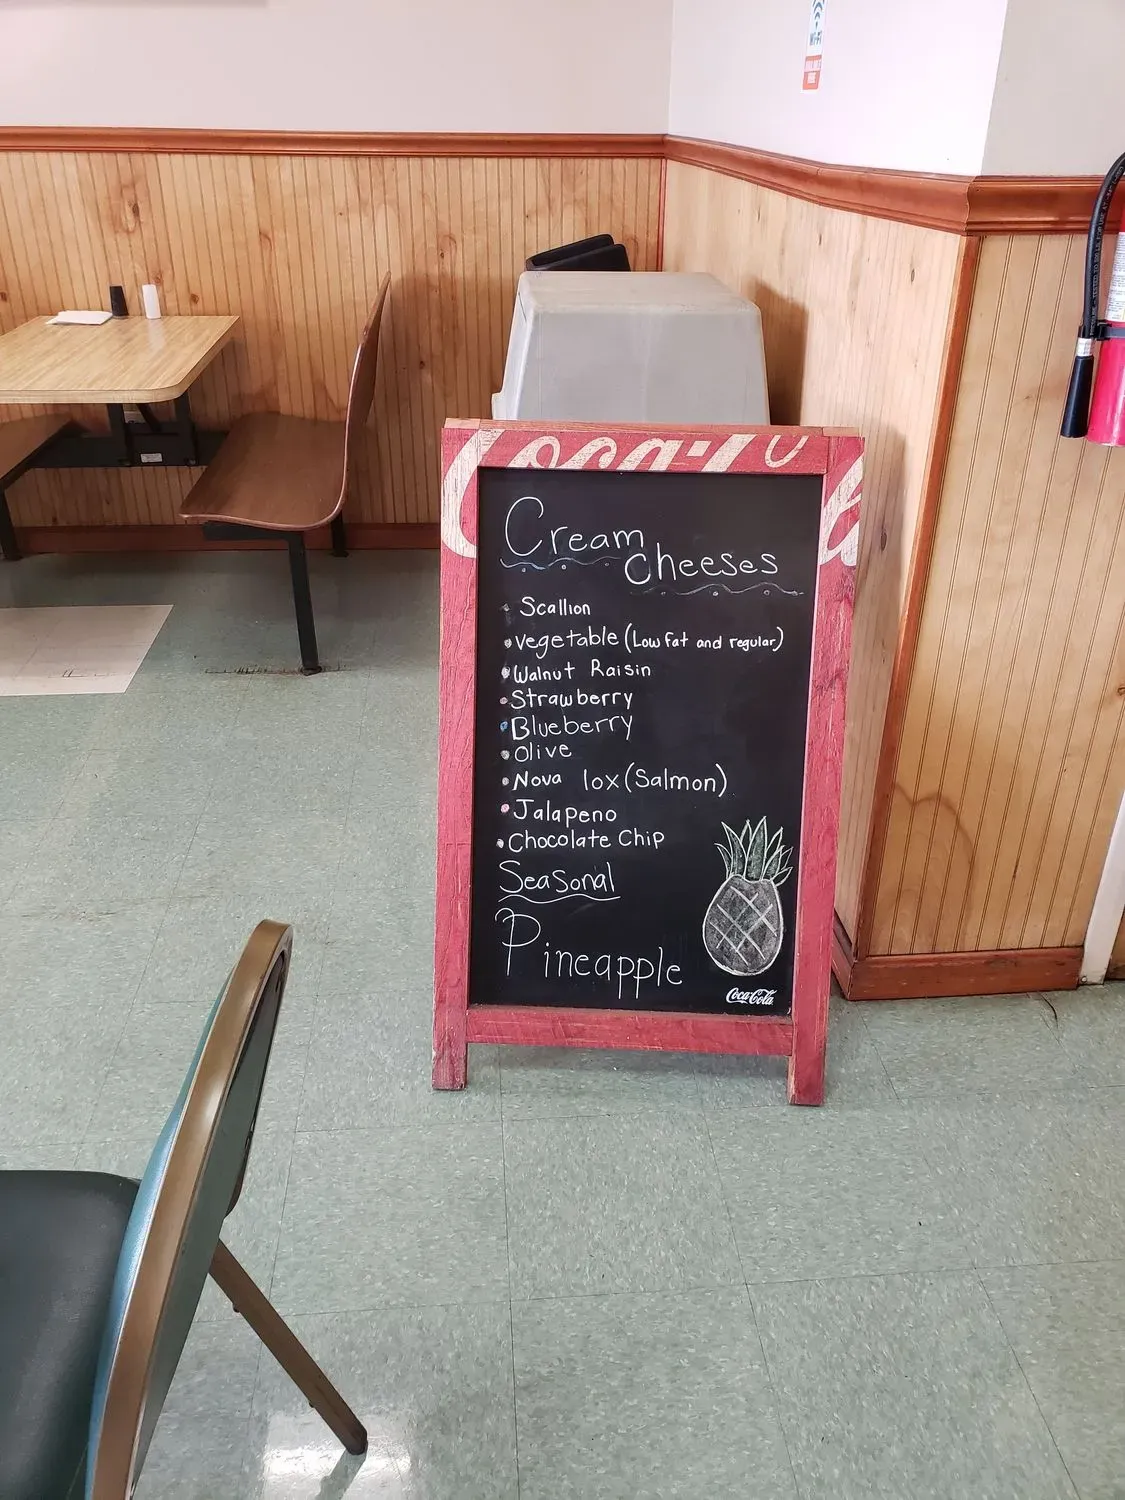 Wi-Fi
Coca-Cola
Cream
cheeses
Scallion
vegetable (Low fat and regular)
Walnut Raisin
Strawberry
Blueberry
Olive
Nova lox (Salmon)
Jalapeno
Chocolate Chip
Seasonal
Pineapple
Coca-Cola